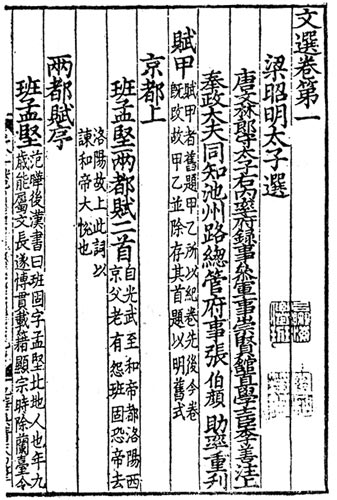 文選卷第一
梁昭明太子選
唐文林郎守太子右內率府錄事參軍事崇賢館直學士李善注上
奉政大夫同知池州路總管府事張伯顏助率重刋
賦甲
賦甲者舊題甲乙所以紀卷先後今卷
既改故甲乙並除存其首題以明舊式
京都上
班孟堅兩都賦二首
自光武至和帝都洛陽西
京父老有怨班固恐帝去
洛陽故上此詞以
諫和帝大悅也
兩都賦序
班孟堅
范曄後漢書曰班固字孟堅北地人也年九
歲能屬文長遂博貫載籍顯宗時除蘭臺令